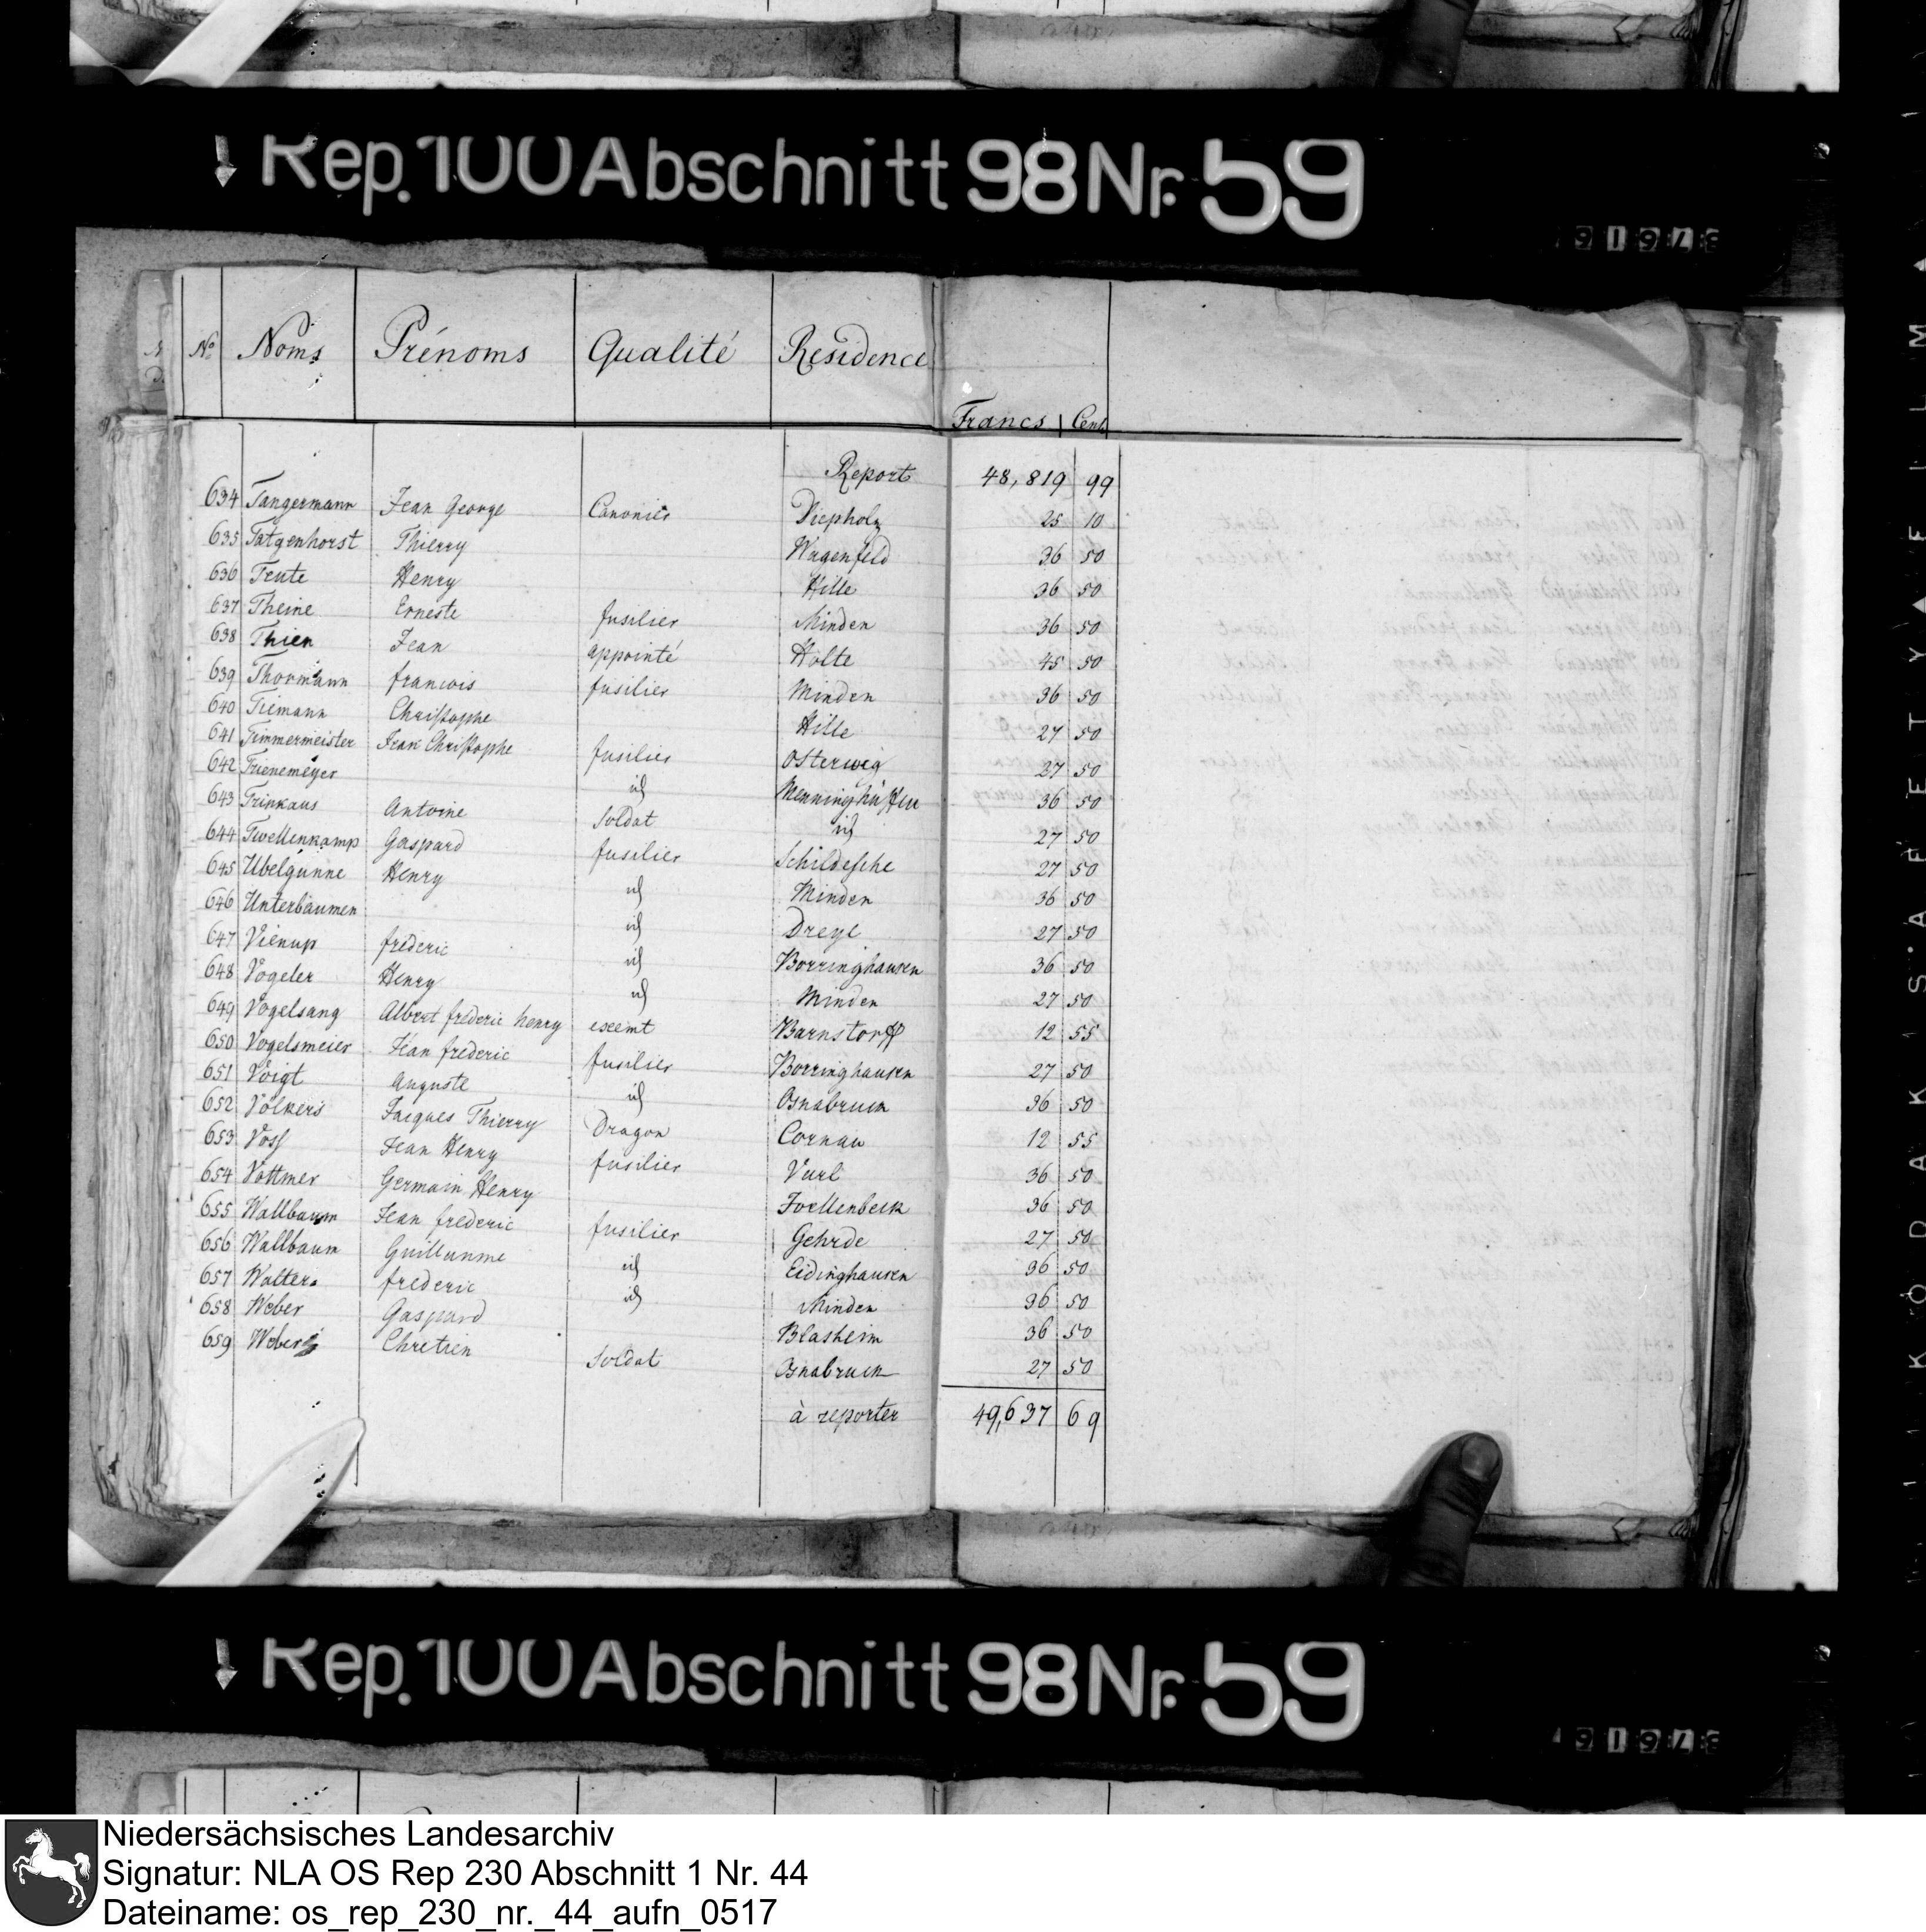 Rep. 100 Abschnitt 98 Nr. 59
No Noms Prénoms Qualité Residence Francs Cent
Report 48,819 99
634 Tangermann Jean George Canonier Diepholz 25 10
635 Tatgenhorst Thierry Wagenfeld 36 50
636 Teute Henry Hille 36 50
637 Theine Erneste fusilier Minden 36 50
638 Thien Jean appointé Holte 45 50
639 Thormann francois fusilier Minden 36 50
640 Tiemann Christophe Hille 27 50
641 Timmermeister Jean Christophe fusilier Osterweg 27 50
642 Trienemeyer id Menninghüffen 36 50
643 Trinkaus Antoine Soldat id 27 50
644 Twellenkamp Gaspard fusilier Schildesche 27 50
645 Ubelgünne Henry id Minden 36 50
646 Unterbäumen id Dreye 27 50
647 Vienup frederic id Borringhausen 36 50
648 Vogeler Henry id Minden 27 50
649 Vogelsang Albert frederic henry exemt Barnstorff 12 55
650 Vogelsmeier Jean frederic fusilier Borringhausen 27 50
651 Voigt Auguste id Osnabruck 36 50
652 Völkers Jacques Thierry Dragon Cornau 12 55
653 Voss Jean Henry fusilier Varl 36 50
654 Vottmer Germain Henry Joellenbeck 36 50
655 Wallbaum Jean frederic fusilier Gehrde 27 50
656 Wallbaum Guillaume id Eidinghausen 36 50
657 Walter frederic id Minden 36 50
658 Weber Gaspard Blasheim 36 50
659 Weber Chretien Soldat Osnabruck 27 50
à reporter 49,637 69
Rep. 100 Abschnitt 98 Nr. 59
Niedersächsisches Landesarchiv
Signatur: NLA OS Rep 230 Abschnitt 1 Nr. 44
Dateiname: os_rep_230_nr._44_aufn_0517